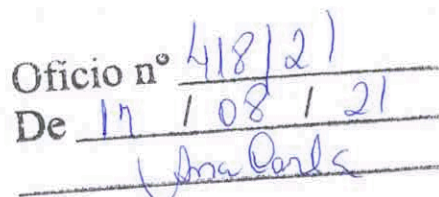 Oficio nº 418/21
De 17 / 08 / 21
Ana Carla